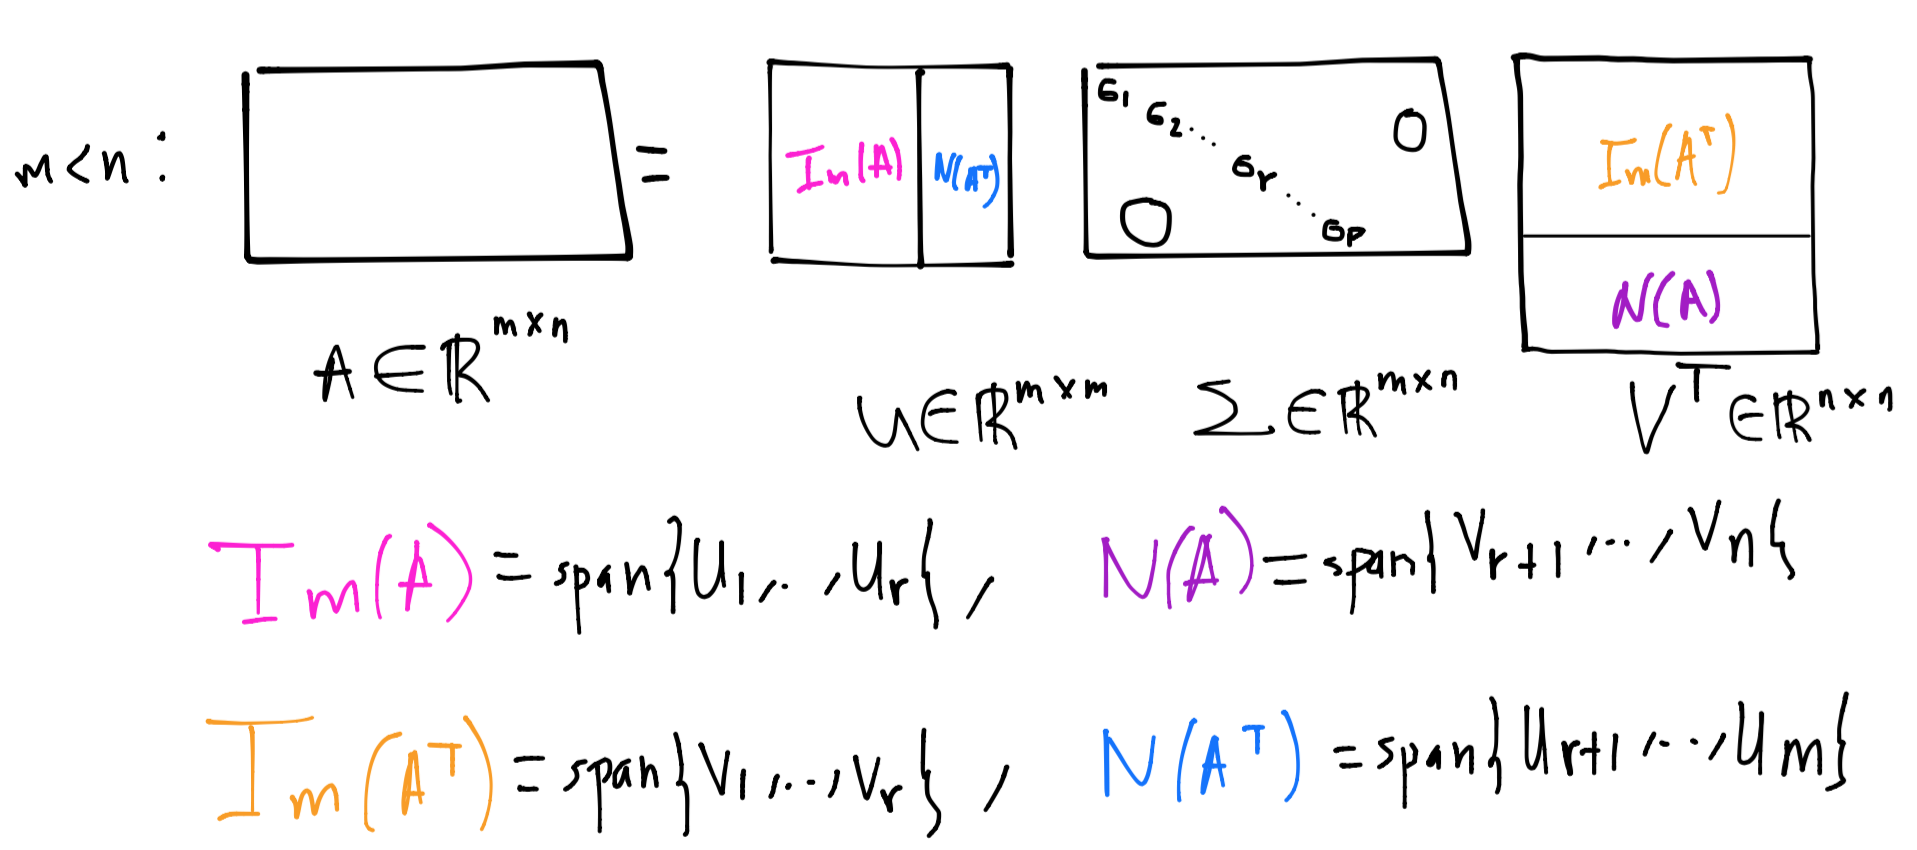 m<n : = Im(A) N(Aᵀ) σ₁ σ₂ ... σᵣ ... σₚ O O Im(Aᵀ) N(A)
A ∈ ℝᵐˣⁿ U ∈ ℝᵐˣᵐ Σ ∈ ℝᵐˣⁿ Vᵀ ∈ ℝⁿˣⁿ
Im(A) = span}U₁,..,Uᵣ{ , N(A) = span}Vᵣ₊₁,...,Vₙ{
Im(Aᵀ) = span}V₁,...,Vᵣ{ , N(Aᵀ) = span}Uᵣ₊₁,...,Uₘ{